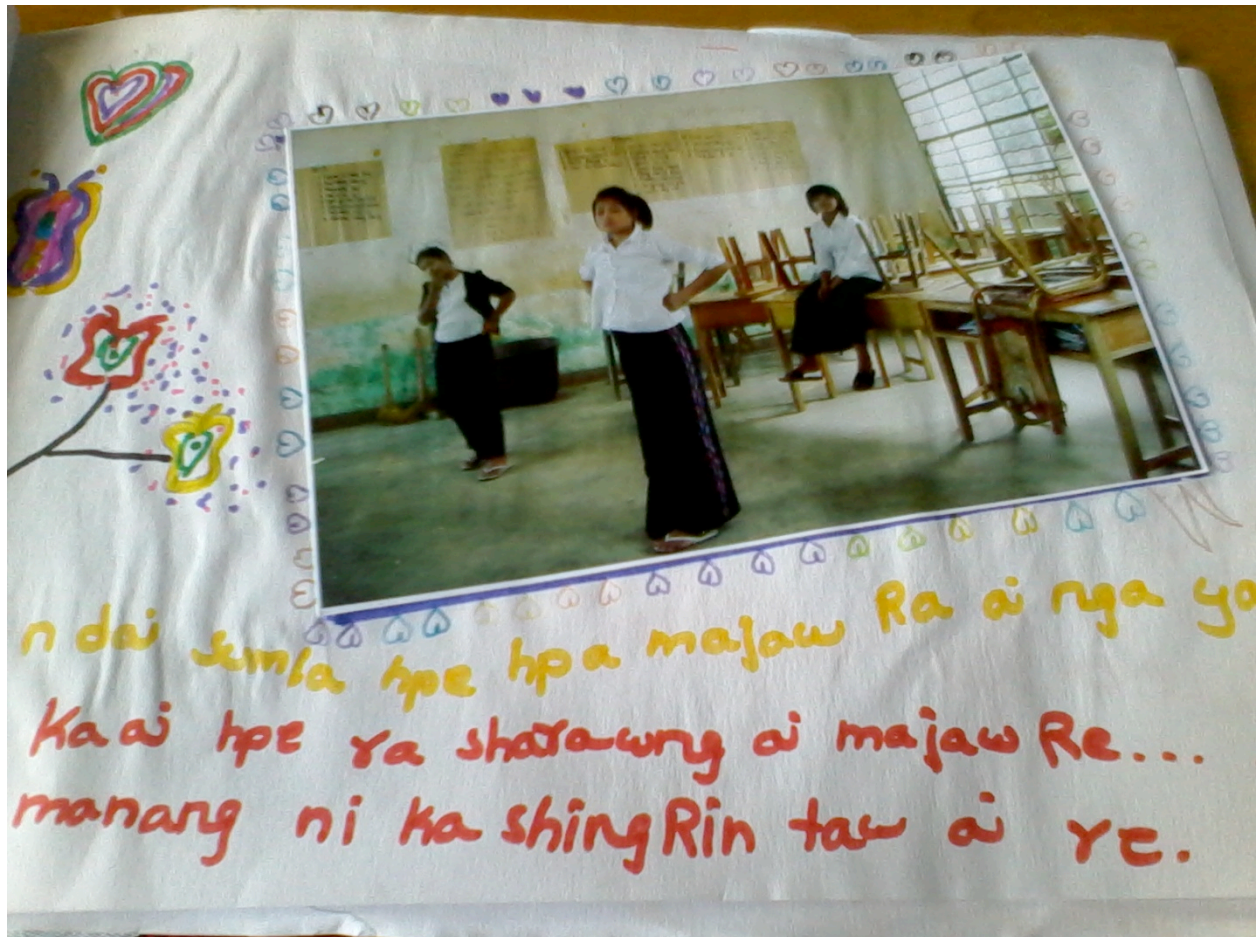 n dai sumla hpe hpa majaw Ra ai nga ya
Ka ai hpe ra sharawng ai majaw Re...
manang ni ka shingRin taw ai re.